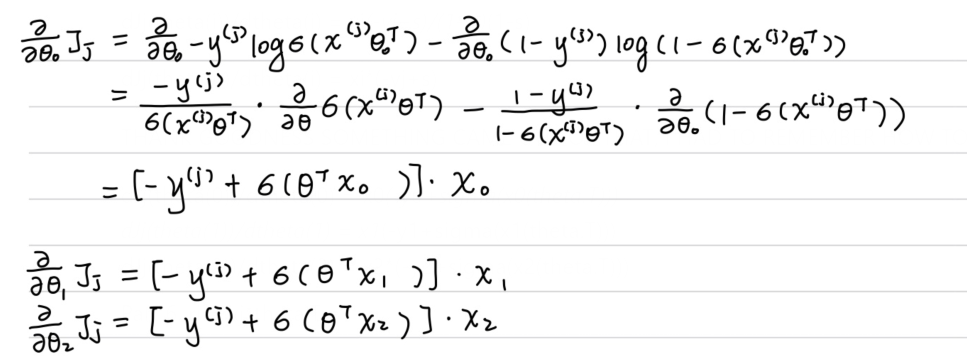 ∂/∂θ₀ J_j = ∂/∂θ₀ -y^(j) log σ(x^(j)θ₀^T) - ∂/∂θ₀ (1-y^(j)) log(1-σ(x^(j)θ₀^T))
= -y^(j)/σ(x^(j)θ^T) · ∂/∂θ σ(x^(j)θ^T) - 1-y^(j)/1-σ(x^(j)θ^T) · ∂/∂θ₀ (1-σ(x^(j)θ^T))
= [-y^(j) + σ(θ^T x₀ )] · x₀
∂/∂θ₁ J_j = [-y^(j) + σ(θ^T x₁ )] · x₁
∂/∂θ₂ J_j = [-y^(j) + σ(θ^T x₂)] · x₂